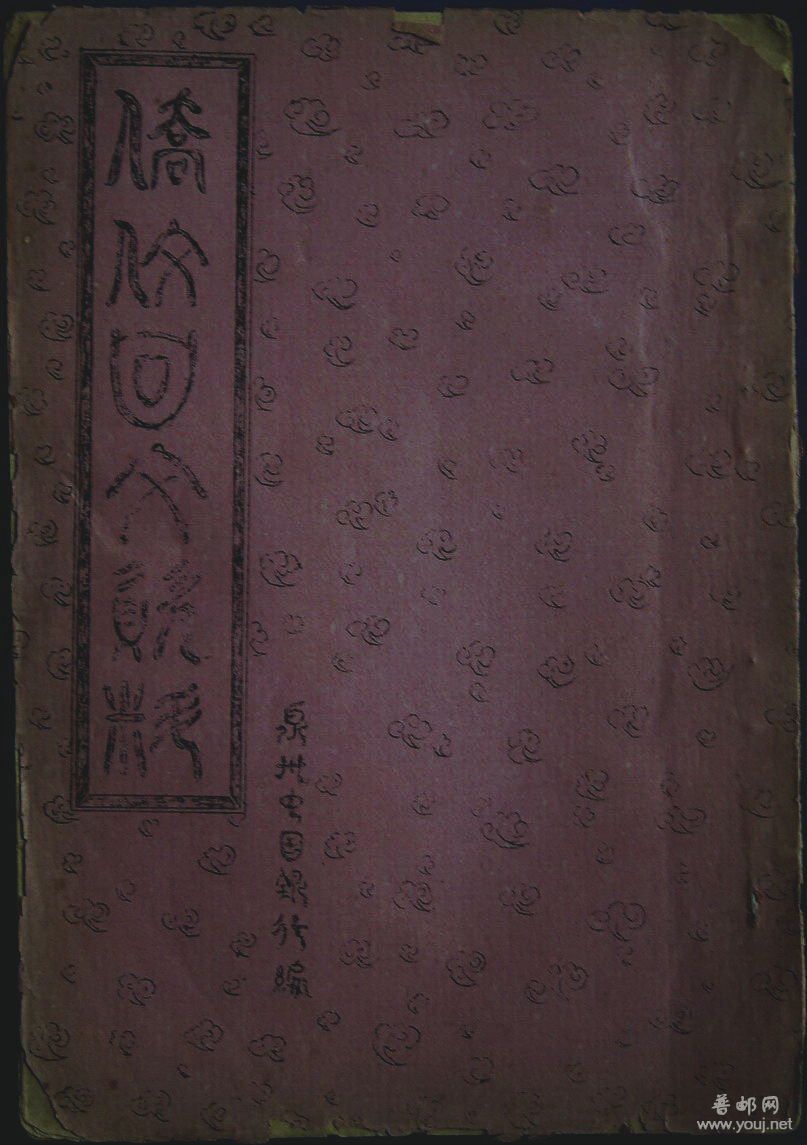 僑份回文
泉州中國銀行編
普邮网
www.youj.net